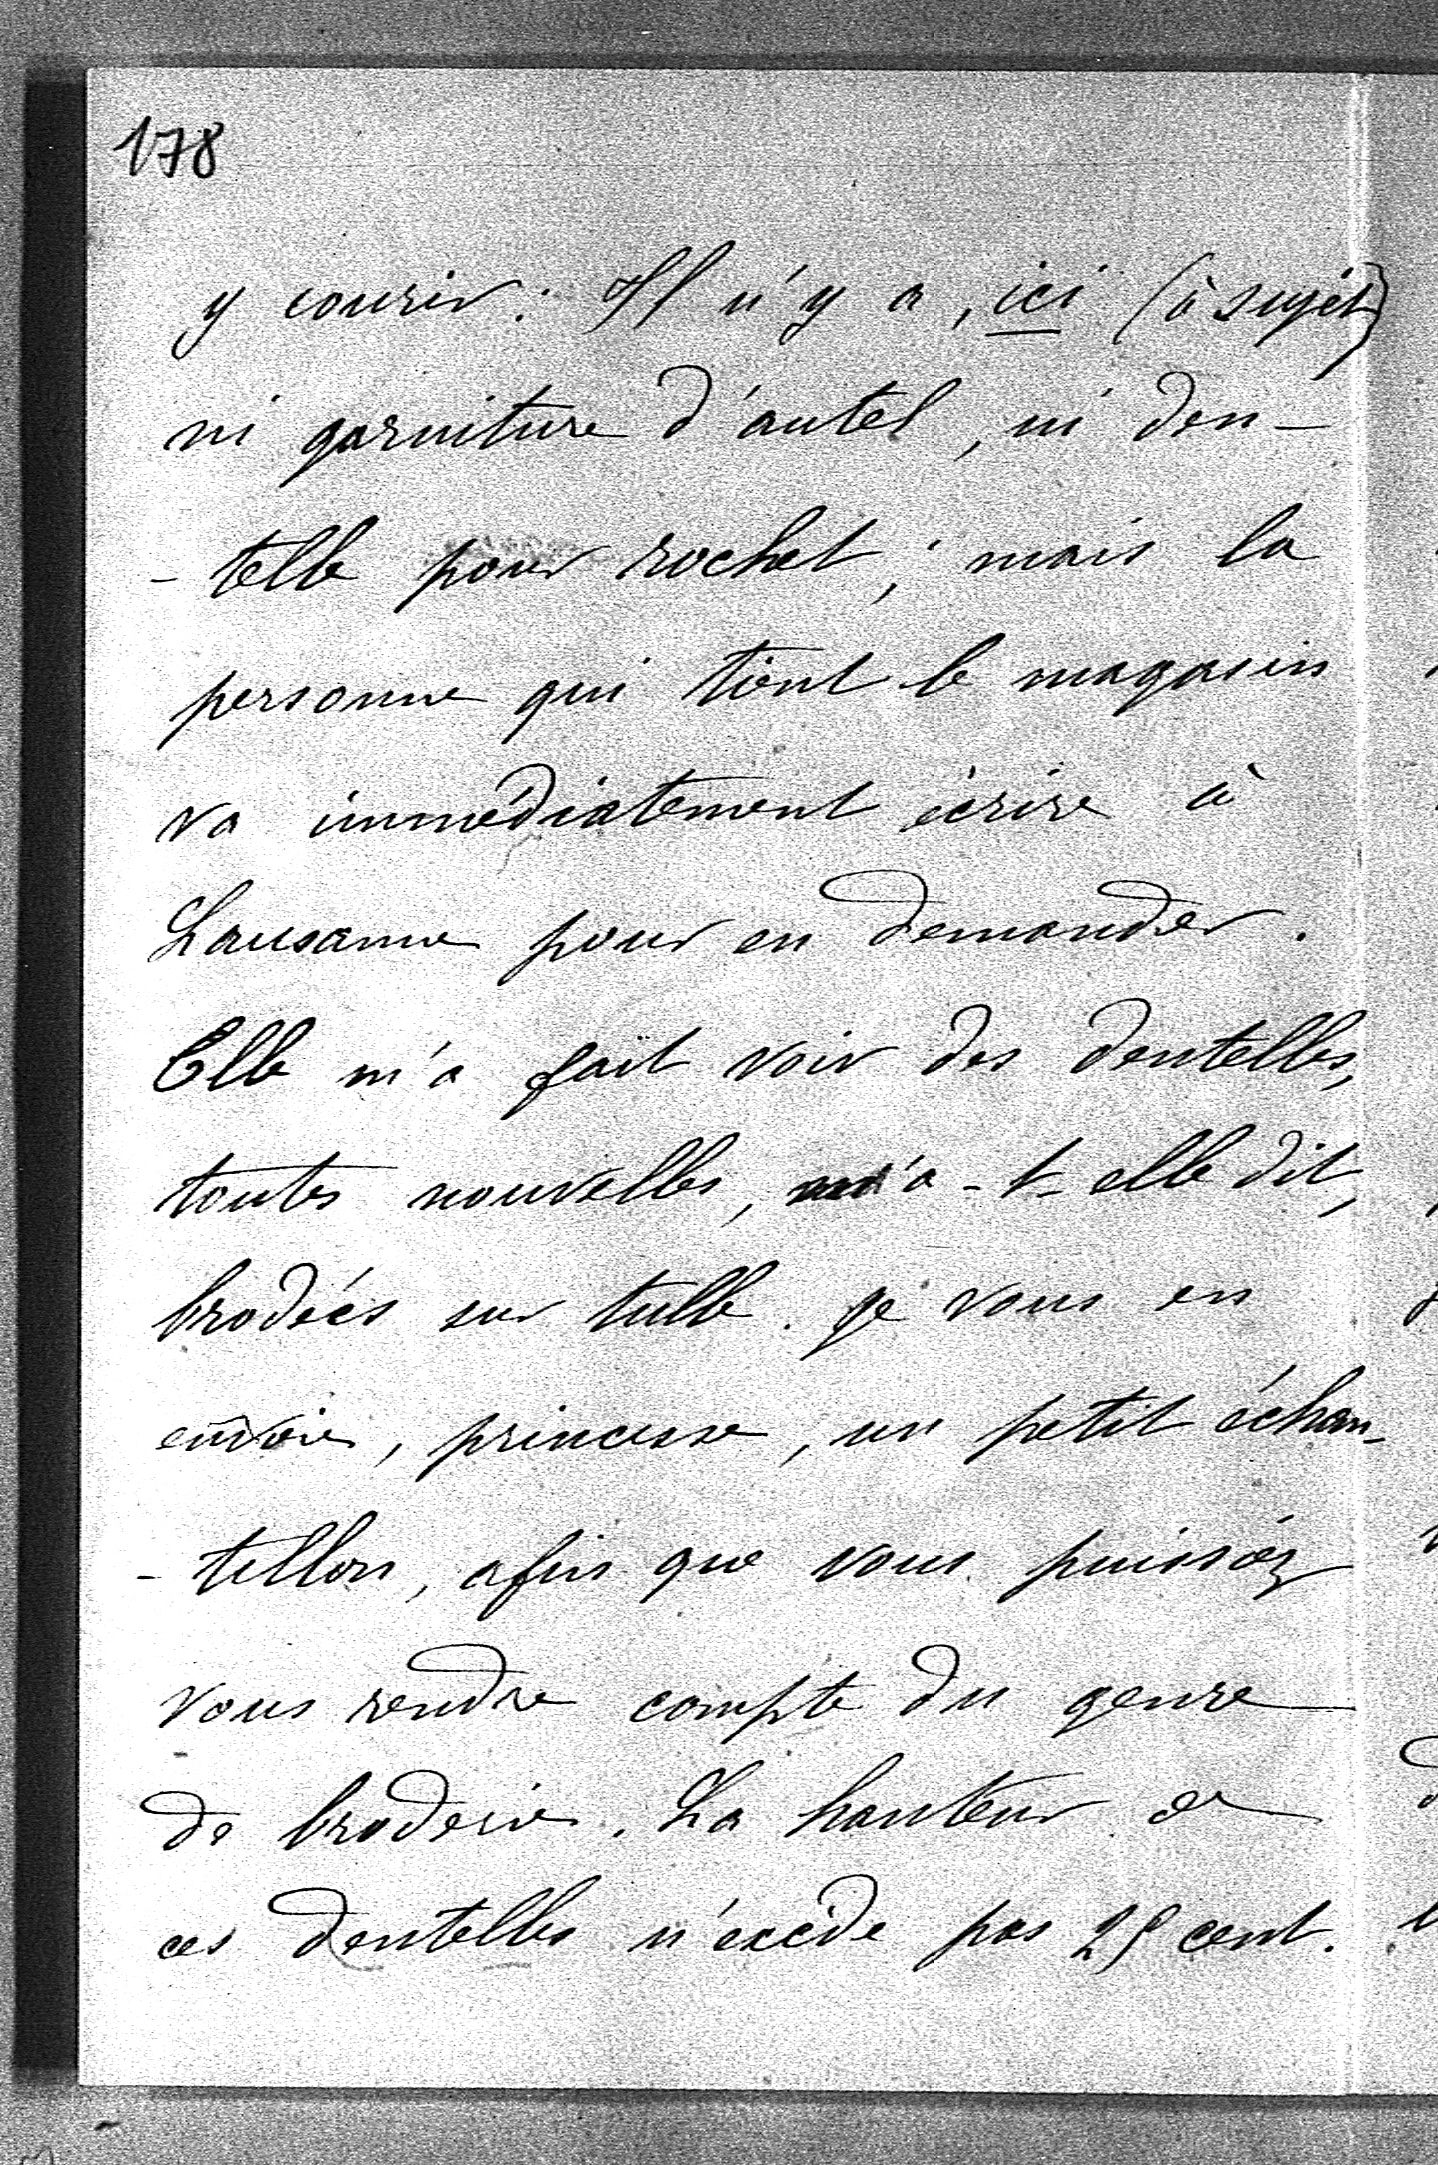 178
y courir : Il n'y a, ici (à sujet)
ni garniture d'autel, ni den-
- telle pour rochet ; mais la
personne qui tient le magasin
va immédiatement écrire à
Lausanne pour en demander.
Elle m'a fait voir des dentelles,
toutes nouvelles, m'a-t-elle dit,
brodées sur tulle. Je vous en
envoie, princesse, un petit échan-
- tillon, afin que vous puissiez
vous rendre compte du genre
de broderie. La hauteur de
ces dentelles n'excède pas 25 cent.